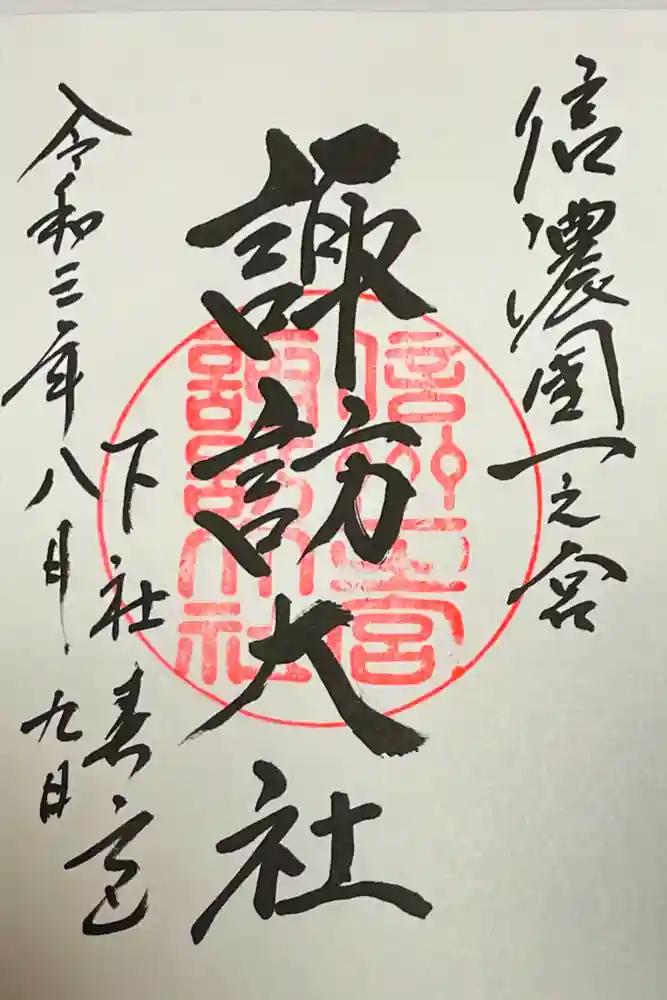 信濃國一之宮
諏訪大社
下社春宮
令和三年八月九日
信州一宮
諏訪大社